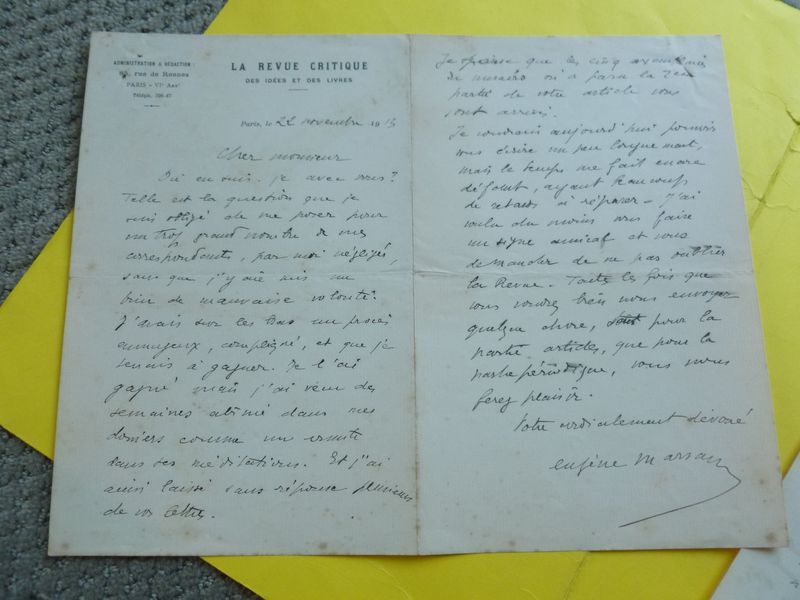 ADMINISTRATION & RÉDACTION :
rue de Rennes
PARIS - VIe Arrt
Téléph.
LA REVUE CRITIQUE
DES IDÉES ET DES LIVRES
Paris, le 22 novembre 1913
Cher monsieur
Où en suis-je avec vous ?
Telle est la question que je
suis obligé de me poser pour
un trop grand nombre de mes
correspondants, par moi négligés,
sans que j'y aie mis un
brin de mauvaise volonté.
J'avais sur les bras un procès
ennuyeux, compliqué, et que je
tenais à gagner. Je l'ai
gagné mais j'ai vécu des
semaines abîmé dans mes
dossiers comme un ermite
dans ses méditations. Et j'ai
ainsi laissé sans réponse plusieurs
de vos lettres.
Je pense que les cinq exemplaires
du numéro où a paru la 2eme
partie de votre article vous
sont arrivés.
Je voudrais aujourd'hui pouvoir
vous écrire un peu longuement,
mais le temps me fait encore
défaut, ayant beaucoup
de retards à réparer - J'ai
voulu du moins vous faire
un signe amical et vous
demander de ne pas oublier
la Revue. Toutes les fois que
vous voudrez bien nous envoyer
quelque chose, pour la
partie articles, que pour la
partie périodique, vous nous
ferez plaisir.
Votre cordialement dévoué
Eugène Marsan